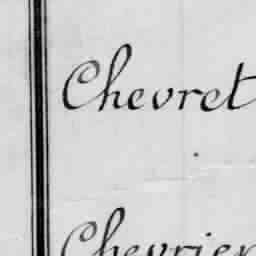 Chevret
Chevrier